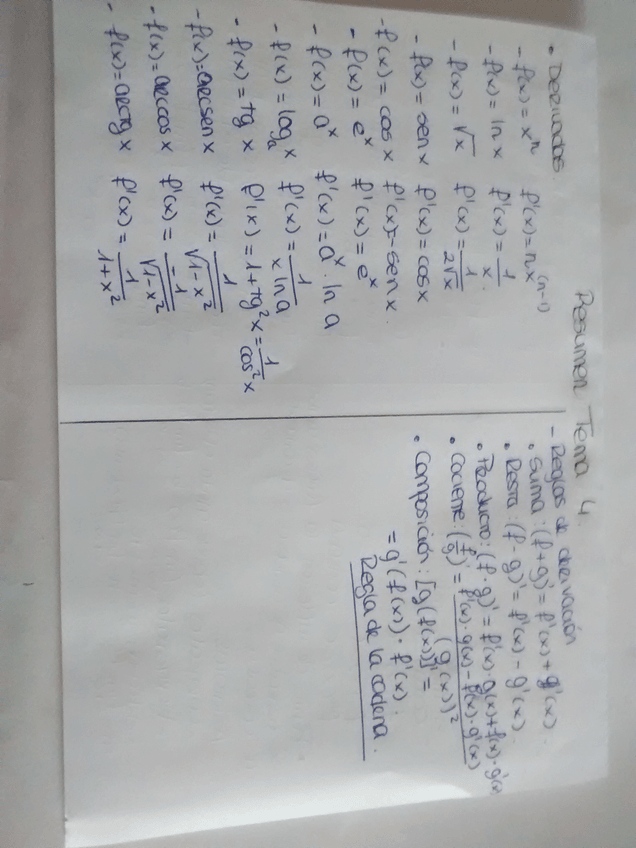 Resumen Tema 4.
• Derivadas.
- f(x) = xⁿ f'(x) = nx⁽ⁿ⁻¹⁾
- f(x) = ln x f'(x) = 1/x.
- f(x) = √x f'(x) = 1/2√x
- f(x) = sen x f'(x) = cos x
- f(x) = cos x f'(x) = -sen x.
- f(x) = eˣ f'(x) = eˣ
- f(x) = aˣ f'(x) = aˣ · ln a
- f(x) = logₐ x f'(x) = 1/x ln a
- f(x) = tg x f'(x) = 1 + tg²x = 1/cos²x
- f(x) = arcsen x f'(x) = 1/√1-x²
- f(x) = arccos x f'(x) = -1/√1-x²
- f(x) = arctg x f'(x) = 1/1+x²
- Reglas de derivación
• Suma: (f+g)' = f'(x) + g'(x).
• Resta: (f-g)' = f'(x) - g'(x).
• Producto: (f·g)' = f'(x)·g(x) + f(x)·g'(x)
• Cociente: (f/g)' = f'(x)·g(x) - f(x)·g'(x)/(g(x))²
• Composición: [g(f(x))]' =
= g'(f(x)) · f'(x).
Regla de la cadena.